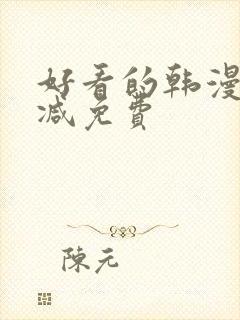 好看的韩漫
减免费
陈元